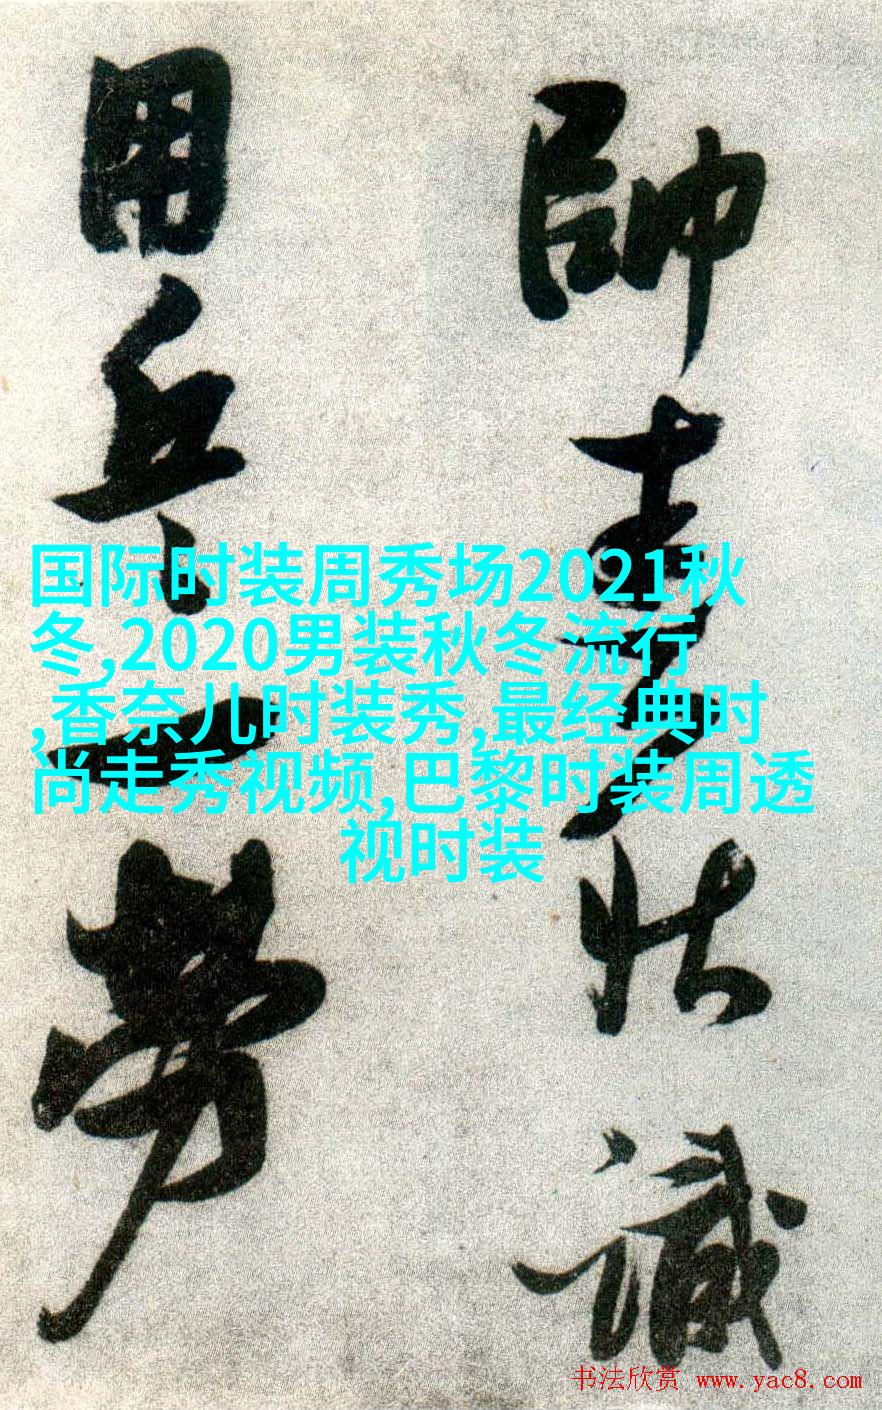 帥識
用兵一勞
国际时装周秀场2021秋
冬,2020男装秋冬流行
,香奈儿时装秀,最经典时
尚走秀视频,巴黎时装周透
视时装
书法欣赏 www.yac8.com